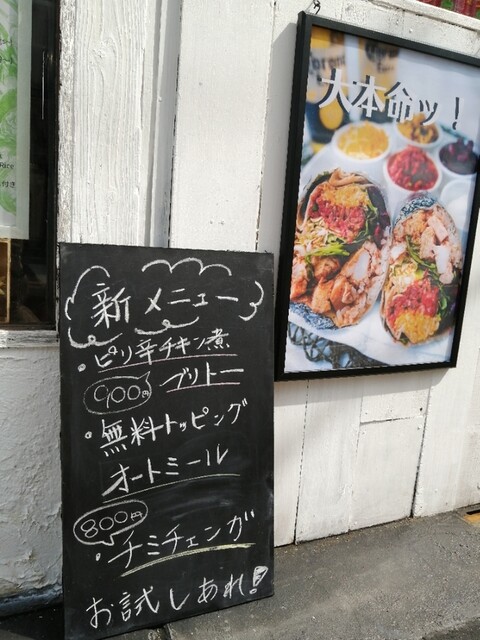 大本命ッ!
新メニュー
・ピリ辛チキン煮
900円 ブリトー
・無料トッピング
オートミール
800円
・チミチェンガ
お試しあれ!